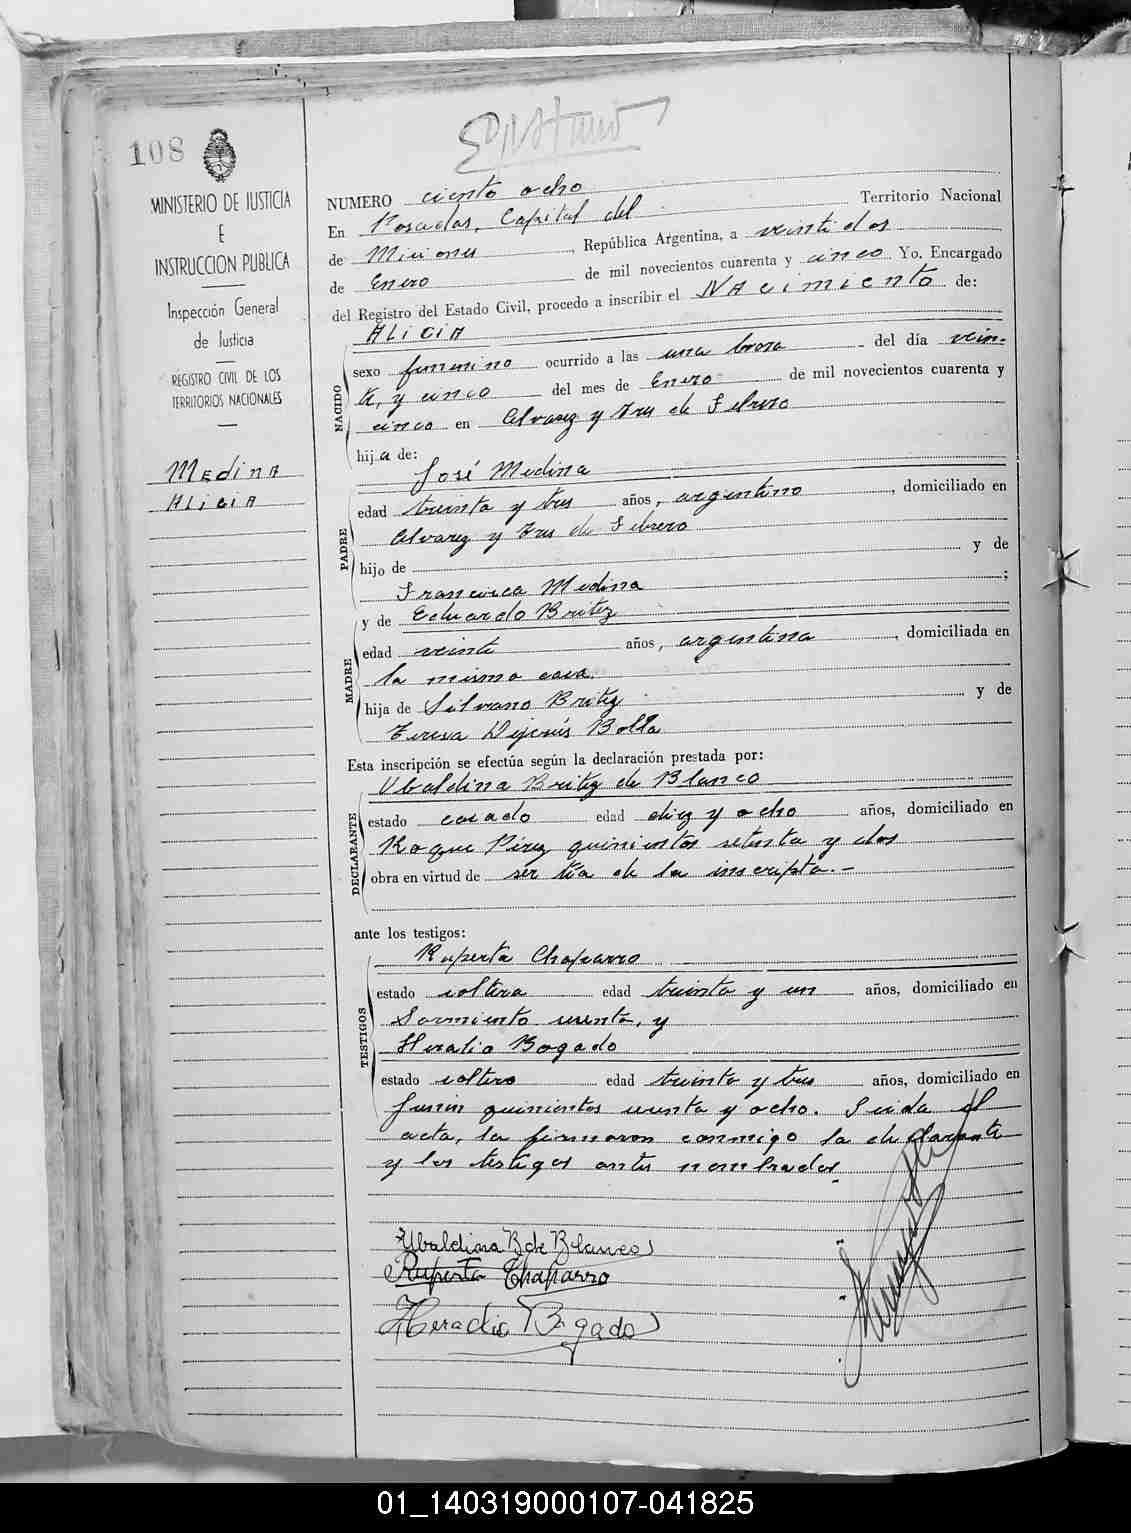 108
MINISTERIO DE JUSTICIA
E
INSTRUCCION PUBLICA
Inspección General
de Justicia
REGISTRO CIVIL DE LOS
TERRITORIOS NACIONALES
MEDINA
ALICIA
NUMERO ciento ocho
En Posadas, Capital del Territorio Nacional
de Misiones, República Argentina, a veintidos
de Enero de mil novecientos cuarenta y cinco Yo, Encargado
del Registro del Estado Civil, procedo a inscribir el NAcimiento de:
ALiCiA
NACIDO
sexo femenino ocurrido a las una hora del día vein-
ti, y cinco del mes de Enero de mil novecientos cuarenta y
cinco en Alvarez y Tres de Febrero
hija de:
José Medina
PADRE
edad treinta y tres años, argentino, domiciliado en
Alvarez y Tres de Febrero
hijo de y de
Francisca Medina;
y de Eduardo Britez
MADRE
edad veinte años, argentina, domiciliada en
la misma casa.
hija de Silvano Britez y de
Teresa Dejesús Bolla
Esta inscripción se efectúa según la declaración prestada por:
Ubaldina Britez de Blanco
DECLARANTE
estado casado edad diez y ocho años, domiciliado en
Roque Pérez quinientos setenta y dos
obra en virtud de ser tía de la inscripta.-
ante los testigos:
Ruperta Chaparro
TESTIGOS
estado soltera edad treinta y un años, domiciliado en
Sarmiento sesenta, y
Heralio Bogado
estado soltero edad treinta y tres años, domiciliado en
Junin quinientos sesenta y ocho. Leida el
acta, la firmaron conmigo la declarante
y los testigos antes nombrados.
Ubaldina B de Blanco
Ruperta Chaparro
Heraclio Bogado
01_140319000107-041825